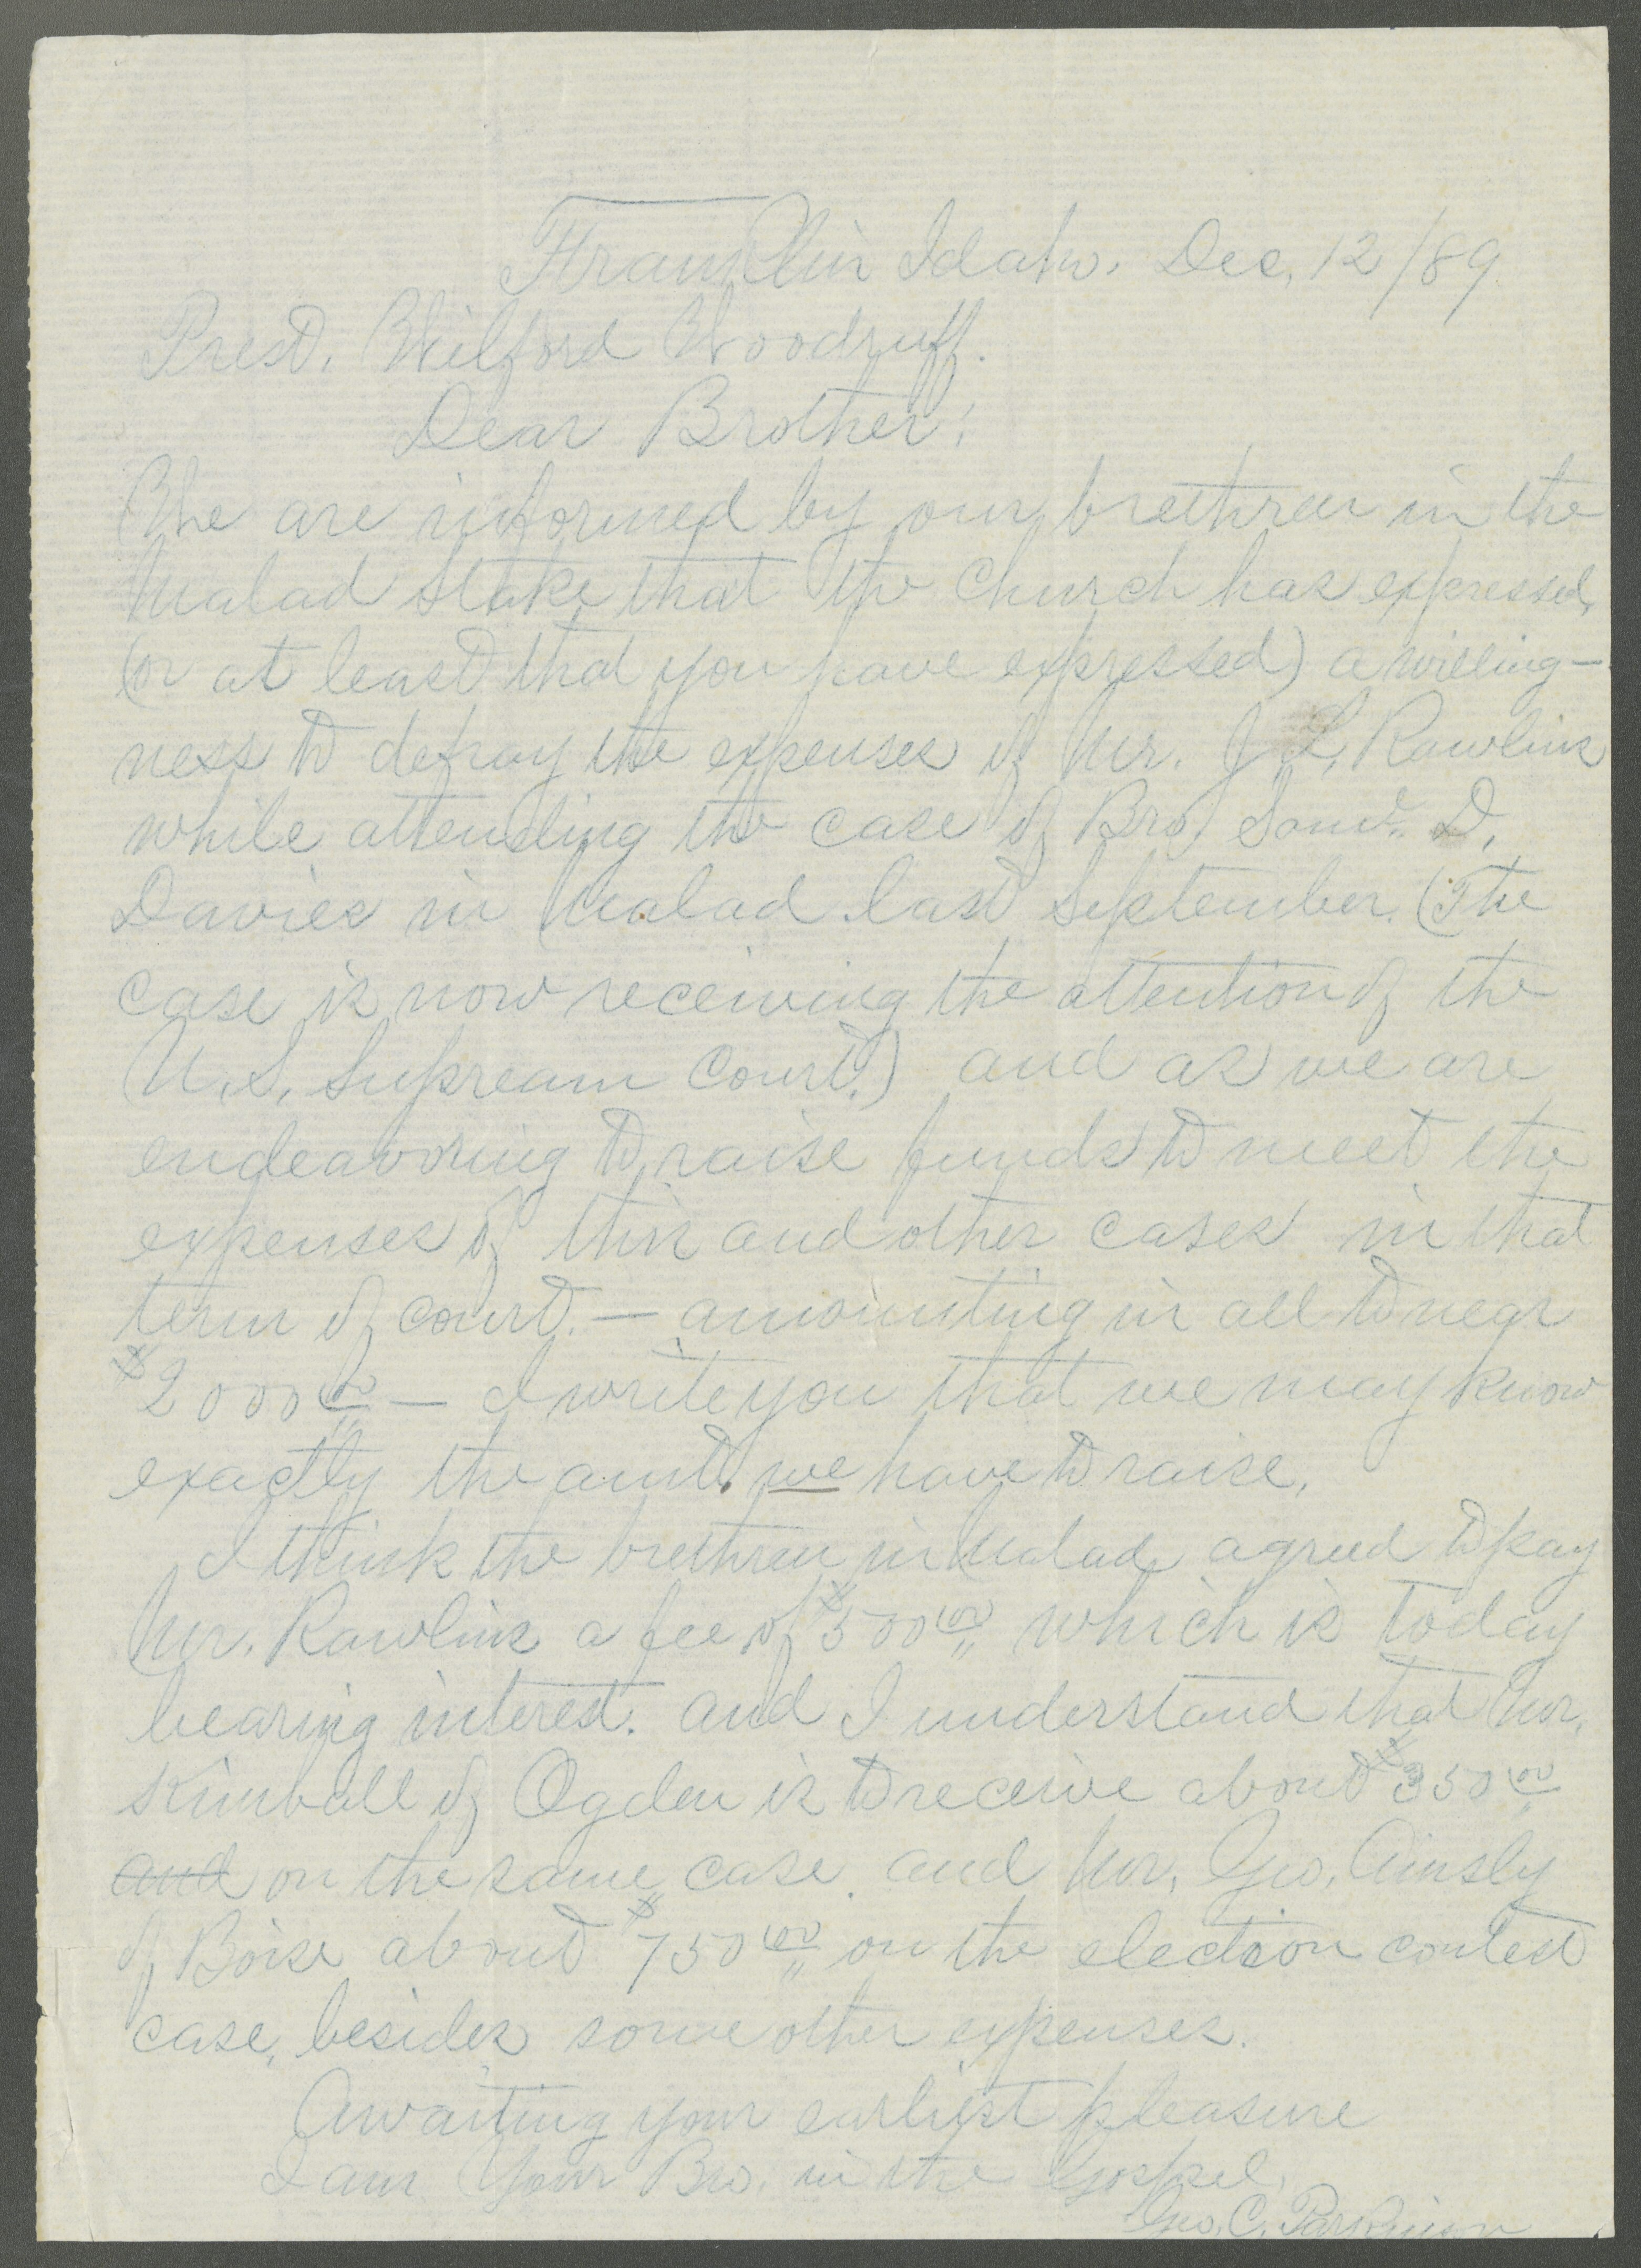 Franklin Idaho. Dec, 12/89.
Prest. Wilford Woodruff.
Dear Brother:
We are informed by our brethren in the
Malad Stake that the Church has expressed,
(or at least that you have expressed) a willing-
ness to defray the expenses of Mr. J. L. Rawlins
while attending the case of Bro. Saml. D.
Davies in Malad last September. (The
case is now receiving the attention of the
U.S. Supream Court.) and as we are
endeavoring to raise funds to meet the
expenses of this and other cases in that
term of court. — amounting in all to near
$2000.00 — I write you that we may know
exactly the amt. we have to raise.
I think the brethren in Malad agreed to pay
Mr. Rawlins a fee of $500.00 which is today
bearing interest. and I understand that Mr.
Kimball of Ogden is to receive about $350.00
and on the same case. and Mr. Geo. Ainsly
of Boise about $750.00 on the election contest
case, besides some other expenses.
Awaiting your earliest pleasure
I am Your Bro. in the Gospel,
Geo. C. Parkinson